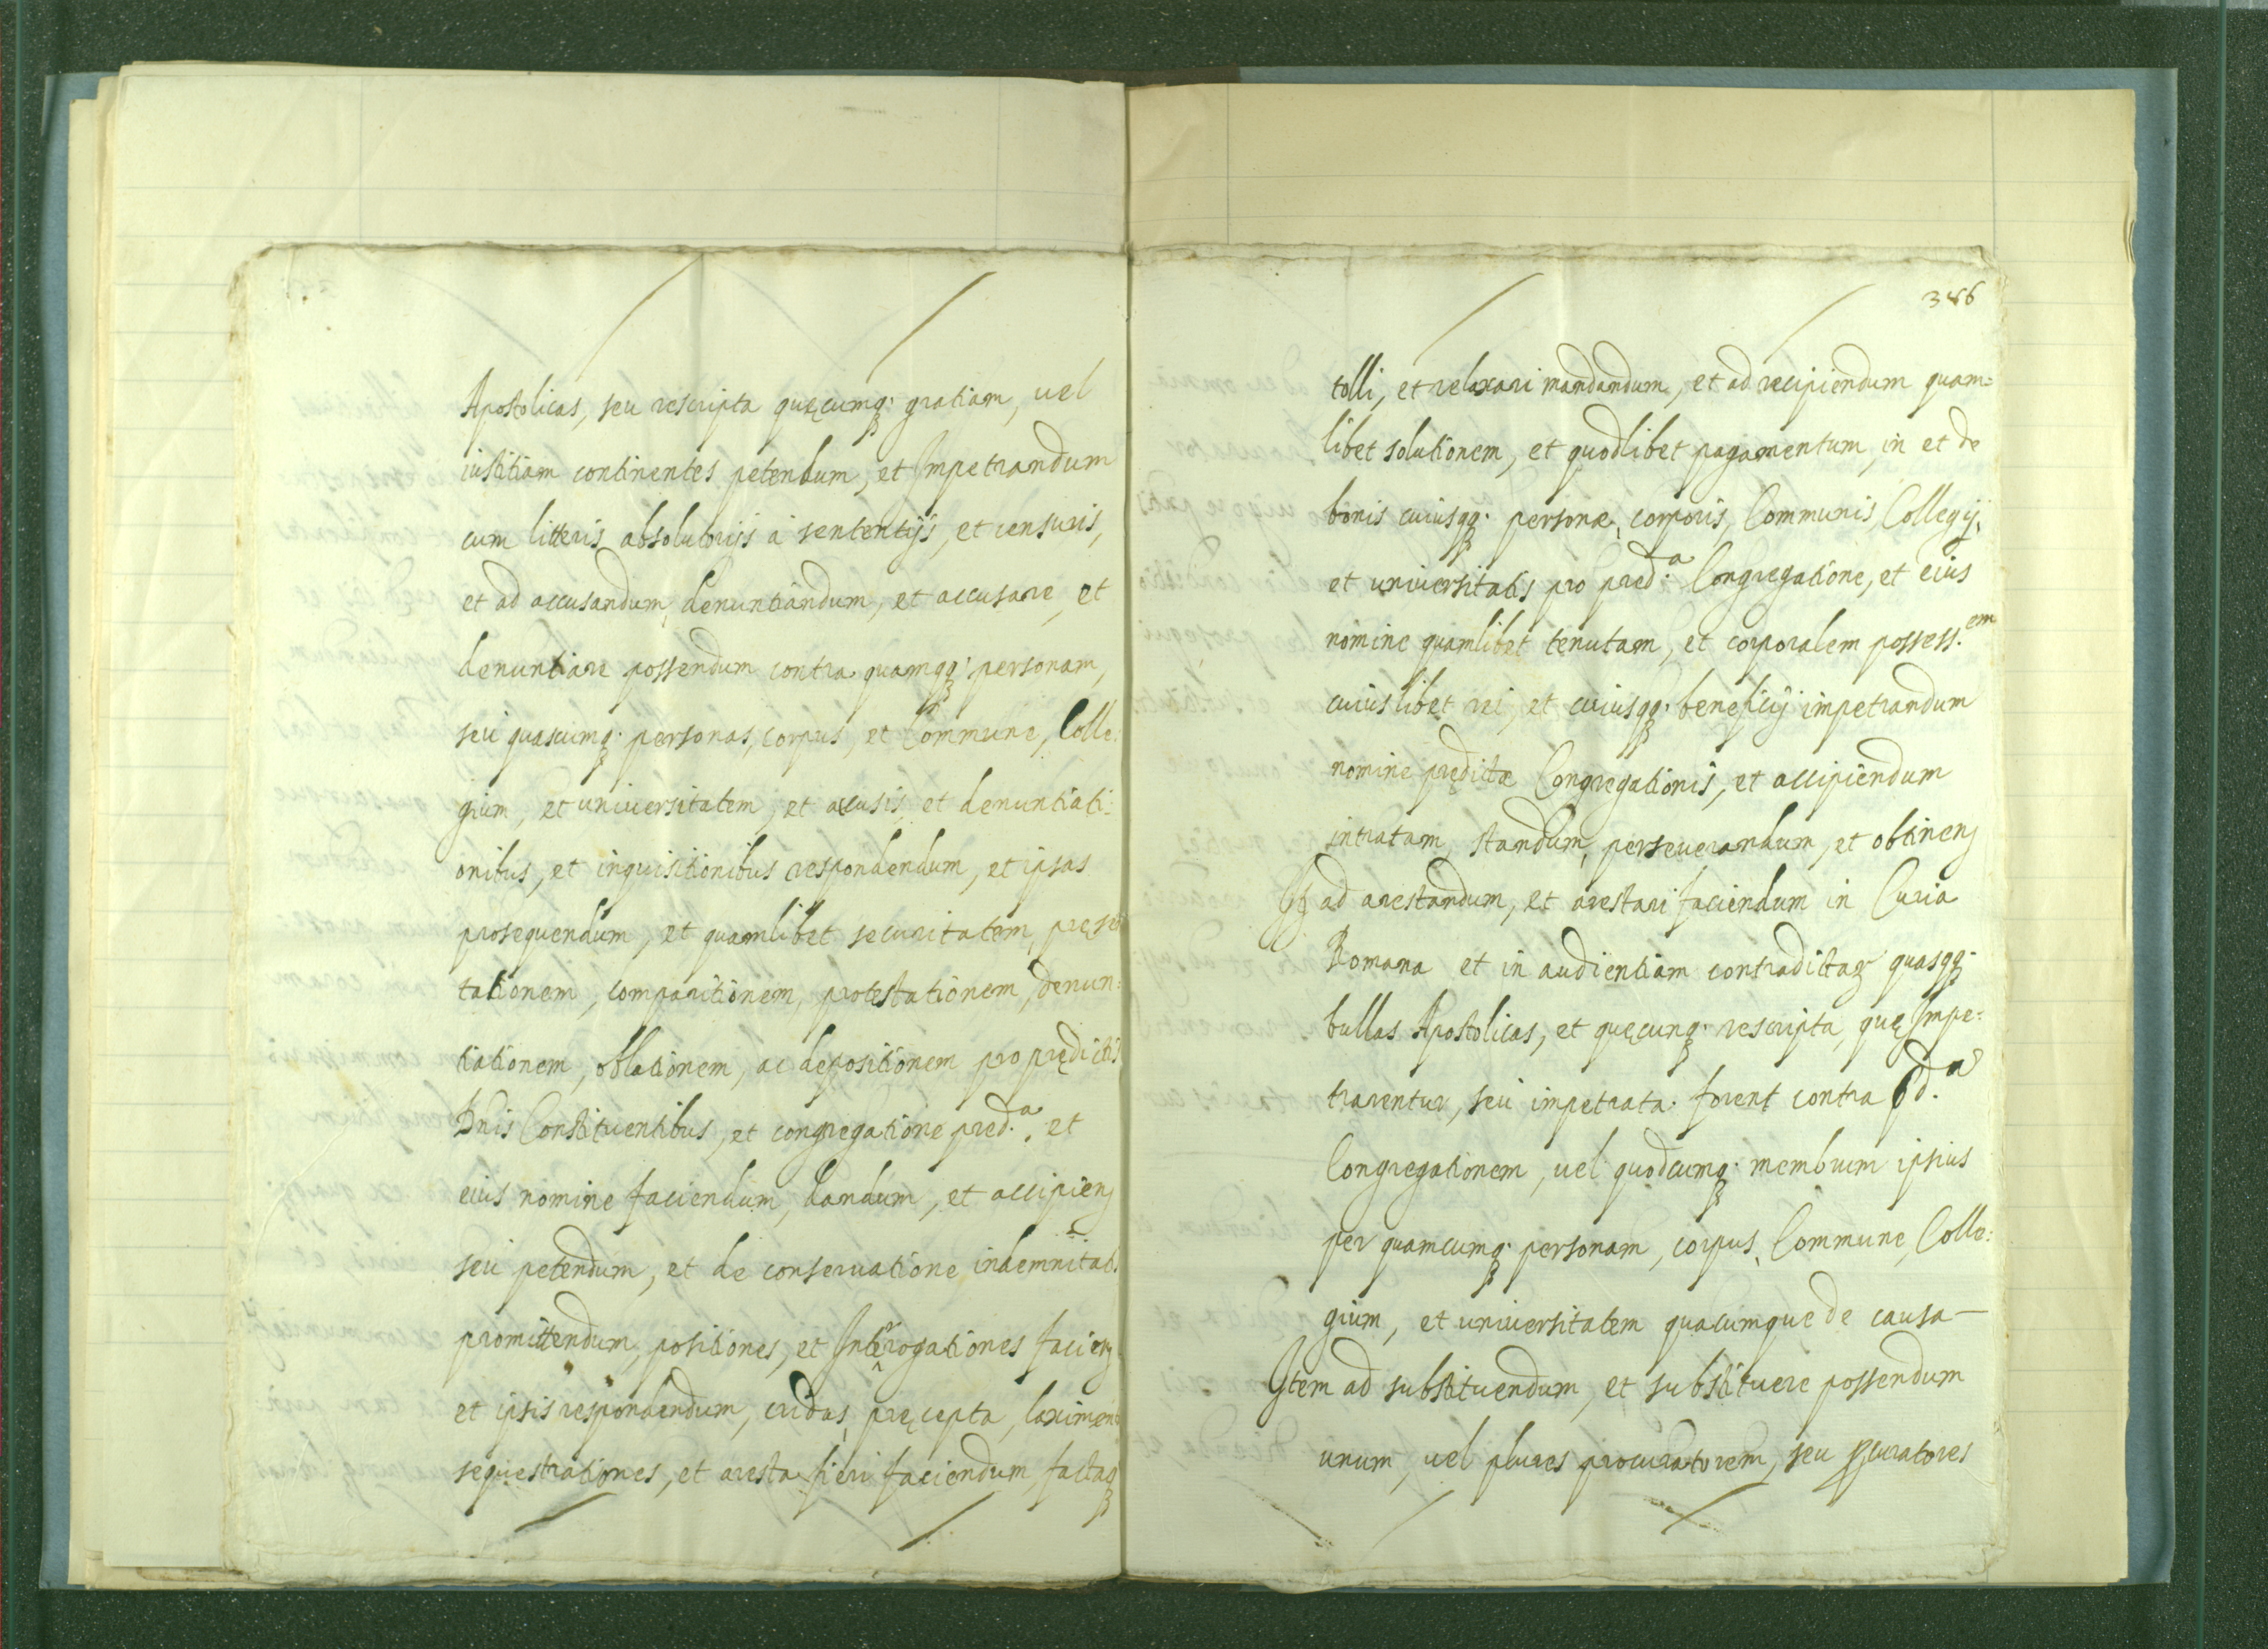 Apostolicas, seu rescripta quęcumq; gratiam, uel
iustitiam continentes petendum, et Impetrandum
cum litteris absolutorijs à sententijs, et censuris,
et ad accusandum, denuntiandum, et accusare, et
denuntiare possendum contra quamqq; personam,
seù quascumq; personas, corpus, et Commune, Colle:
gium, et uniuersitatem, et accusis, et denuntiati:
onibus, et inquisitionibus respondendum, et ipsas
prosequendum, et quamlibet securitatem, pręsen
tationem, comparitionem, protestationem, denun:
tiationem, oblationem, ac depositionem pro prędictis
Dnis Constituentibus, et congregatione pred.ª, et
eius nomine faciendum, dandum, et accipien
seù petendum, et de conseruatione indemnitat.
promittendum, positiones, et Interrogationes facien
et ipsis respondendum, cridas, pręcepta, laximen
sequestrationes, et aresta fieri faciendum, factaq;
386
tolli, et relaxari mandandum, et ad recipiendum quam=
libet solutionem, et quodlibet pagamentum, in et de
bonis cuiusqq; personæ, corporis, Communis, Collegij,
et uniuersitatis pro pred.ª Congregatione, et eius
nomine quamlibet tenutam, et corporalem possess.em
cuiuslibet rei, et cuiusqq; beneficij impetrandum
nomine prędictæ Congregationis, et accipiendum
intratam, standum, perseuerandum, et obtinen
Et ad arestandum, et arestari faciendum in Curia
Romana et in audientiam contradictar quasqq;
bullas Apostolicas, et quęcunq; rescripta, quę Impe:
trarentur, seù impetrata forent contra pd.ª
Congregationem, uel quodcumq; membrum ipsius
per quamcumq; personam, corpus, Commune, Colle:
gium, et uniuersitatem quacumque de causa —
Item ad substituendum, et substituere possendum
unum, uel plures procuratorem, seu pcuratores